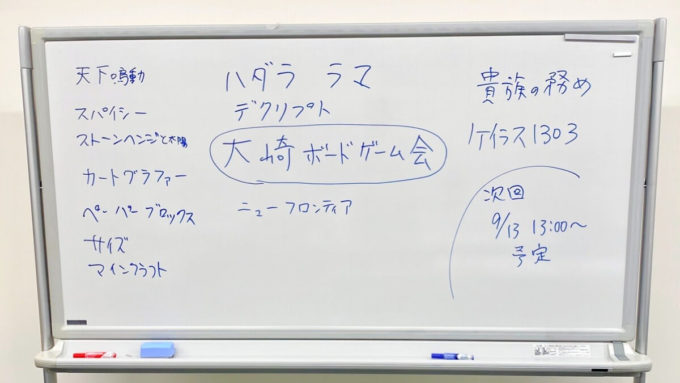 天下鳴動
スパイシー
ストーンヘンジと太陽
カートグラファー
ペーパーブロックス
サイズ
マインクラフト
ハダラ ラマ
デクリプト
大崎ボードゲーム会
ニューフロンティア
貴族の務め
ケイラス1303
次回
9/13 13:00〜
予定